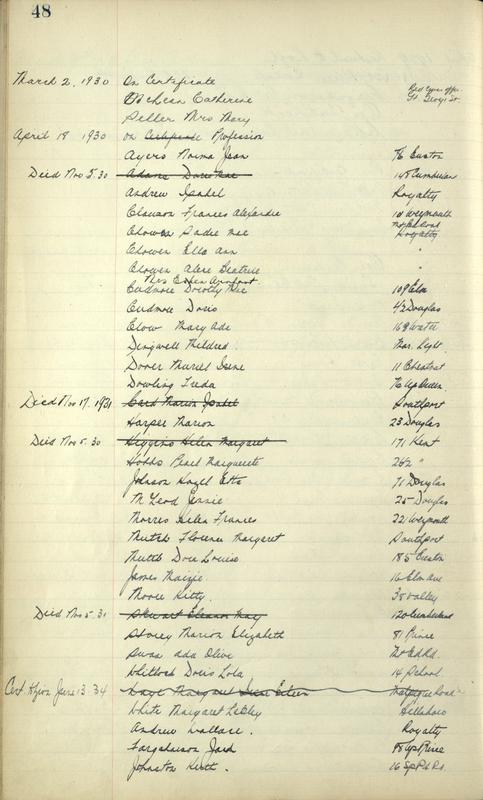 48
March 2, 1930 On Certificate
McLean Catherine
Seller Mrs Mary
April 18 1930 on Certificate Profession
Ayers Norma Jean 76 Euston
Died Nov 5.30 Adams Dorothae 148 Cumberland
Andrew Isabel Royalty
Clawson Frances Alexandre 10 Weymouth
Clowen Sadie Mae Royalty
Clowen Ella Ann "
Clowen Alice Beatrice "
Mrs
Cudmore Dorothy Mae 109 Elm
Cudmore Doris 42 Douglas
Clow Mary Ada 169 Water
Dingwell Mildred Mar. Light
Dover Muriel Irene 11 Chestnut
Dowling Freda 76 Up Queen
Died Nov 17. 1931 Card Marion Isabel Southport
Harper Marion 23 Douglas
Died Nov 5.30 Higgins Helen Margaret 171 Kent
Hobbs Pearl Marguerite 262 "
Johnson Hazel Etta 71 Douglas
McLeod Jennie 25 Douglas
Morris Helen Frances 221 Weymouth
Mutch Florence Margaret Southport
Mutch Dora Louise 185 Euston
James Maizie 16 Elm Ave
Moore Kitty. 38 Valley
Died Nov 5.31 Stewart Eleanor May 120 Cumberland
Storey Marion Elizabeth 81 Prince
Swan Ada Olive Mt Ed Rd.
Whitlock Doris Lola 14 School
Cert. June 13. 34 Margaret Eileen Malpeque Road
White Margaret Lesley Hillsboro
Andrew Wallace. Royalty
Farquharson Jard 98 Up Prince
Johnston Keith. 16 Sp Pk Rd.